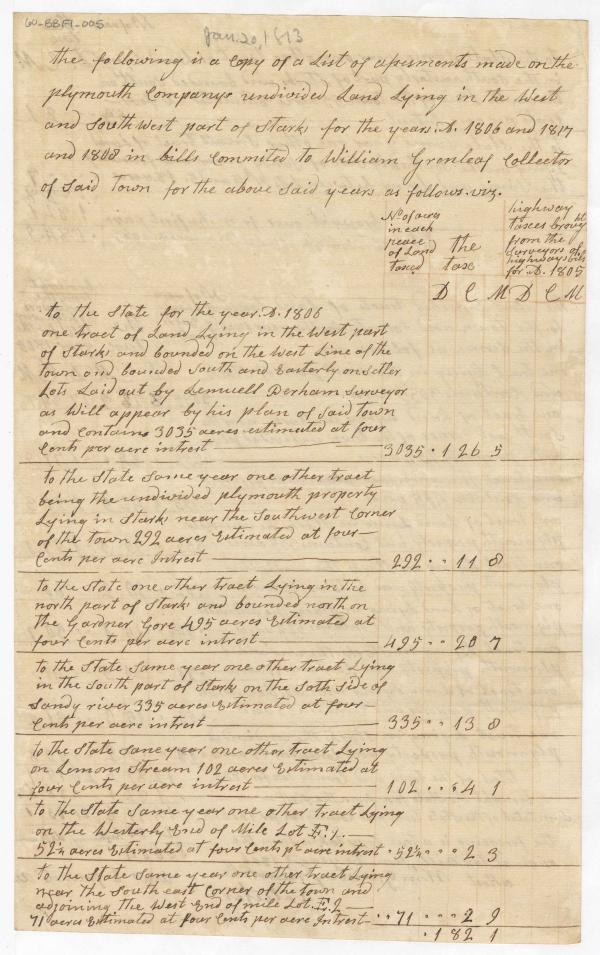 60-BBF1-005
Jan. 20, 1813
the following is a Copy of a List of apesments made on the
plymouth Companys undivided Land Lying in the West
and South West part of Starks for the years. A. 1806 and 1817
and 1808 in bills Commited to William Grenleaf Collector
of Said Town for the above Said years as follows. viz.
No. of acres in each peace of Land taxed
the tax
highway taxces brought from the Surveyors of highways bills for A. 1805
D C M D C M
to the State for the year. A. 1806
one tract of Land Lying in the West part
of Starks and bounded on the West Line of the
town and bounded South and Easterly on Setler
Lots Laid out by Lemuell Perham Surveyor
as Will appear by his plan of Said town
and Contains 3035 acres estimated at four
Cents per acre intrest 3035 . 1 26 5
to the State Same year one other tract
being the undivided plymouth property
Lying in Starks near the Southwest Corner
of the town 292 acres Estimated at four
Cents per acre Intrest 292 . . 11 8
to the State one other tract Lying in the
north part of Starks and bounded north on
the Gardner Gore 495 acres Estimated at
four Cents per acre intrest 495 . . 20 7
to the State Same year one other tract Lying
in the South part of Starks on the Soth Side of
Sandy river 335 acres Estimated at four
Cents per acre intrest 335 . . 13 8
to the State Sane year one other tract Lying
on Lemons Stream 102 acres Estimated at
four Cents per acre intrest 102 . . 4 1
to the State Same year one other tract Lying
on the Westerly End of Mile Lot F. 1.
52¼ acres Estimated at four Cents pr acre intrest . 52¼ . . . 2 3
to the State Same year one other tract Lying
near the South east Corner of the town and
adjoining the West End of mile Lot. F. 2
71 acres Estimated at four Cents per acre Intrest . . 71 . . . 2 9
. 1 82 1